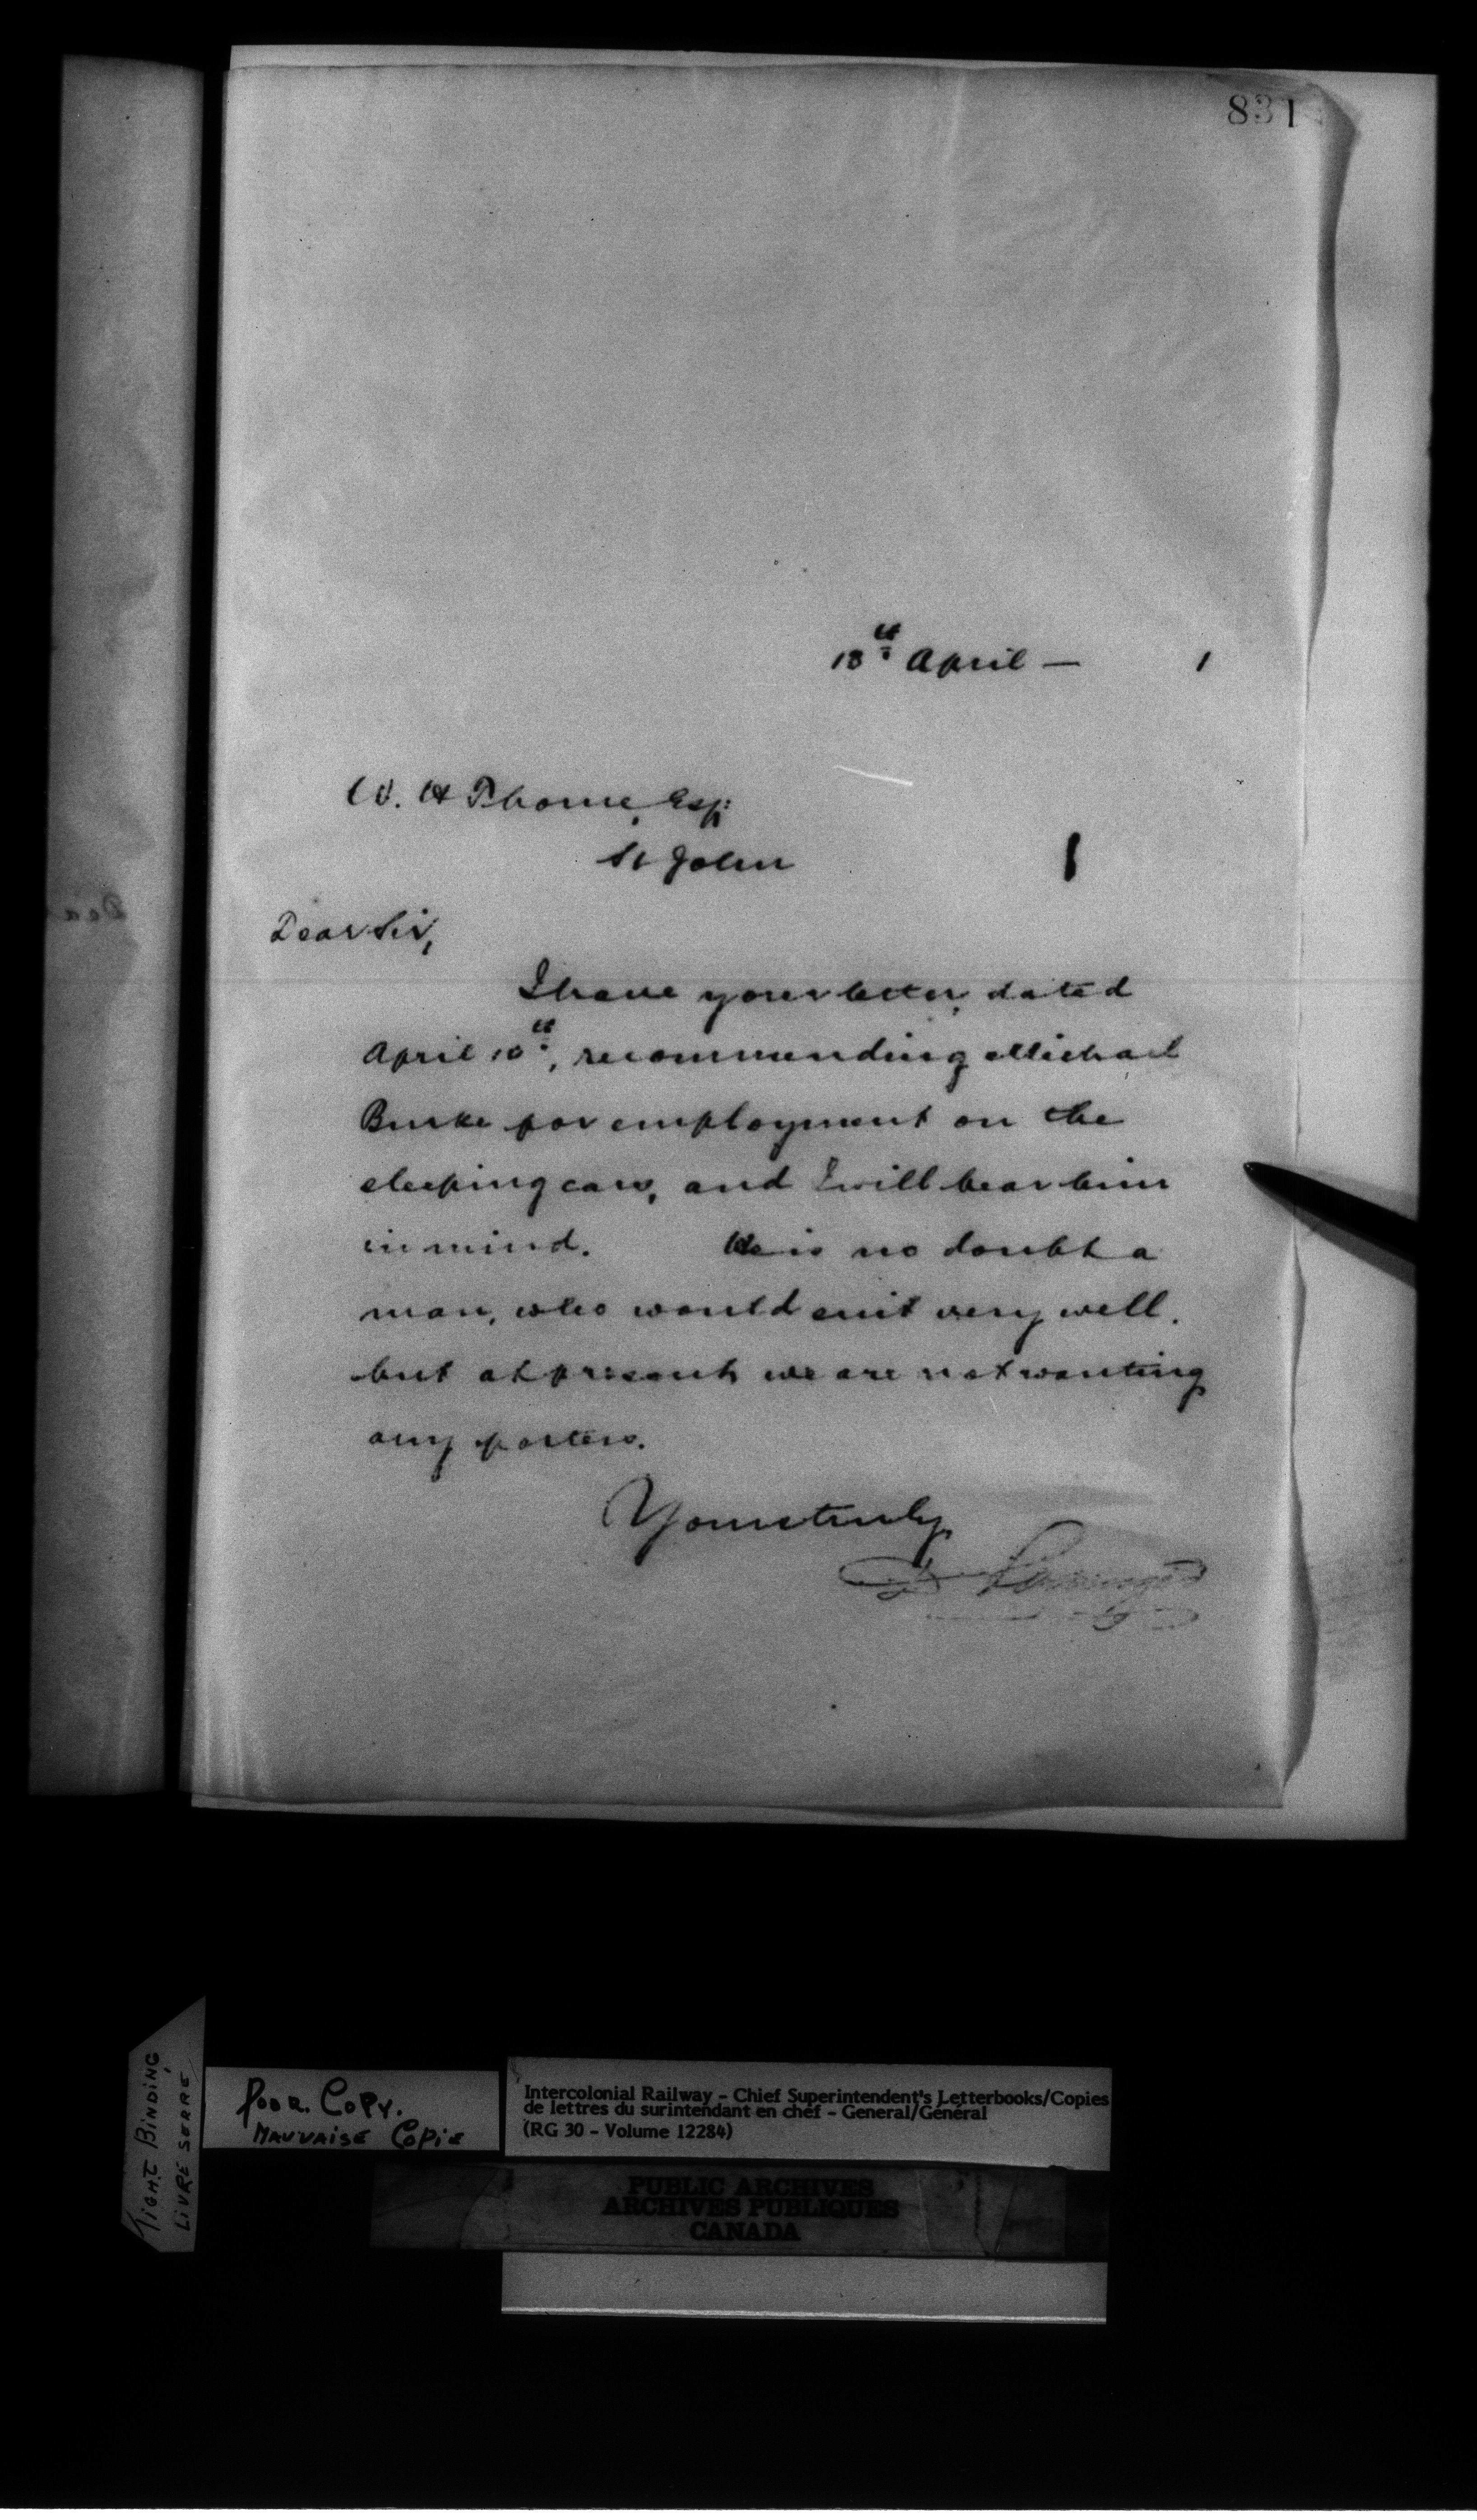 831
18th April — 1
W. H Thorne, Esq:
St John
Dear Sir,
I have your letter, dated
April 10th, recommending Michael
Burke for employment on the
sleeping cars, and I will bear him
in mind. He is no doubt a
man, who would suit very well.
but at present we are not wanting
any porters.
Yours truly
Dea
TIGHT BINDING
LIVRE SERRÉ
POOR COPY.
MAUVAISE COPIE
Intercolonial Railway – Chief Superintendent's Letterbooks/Copies
de lettres du surintendant en chef – General/Général
(RG 30 – Volume 12284)
PUBLIC ARCHIVES
ARCHIVES PUBLIQUES
CANADA